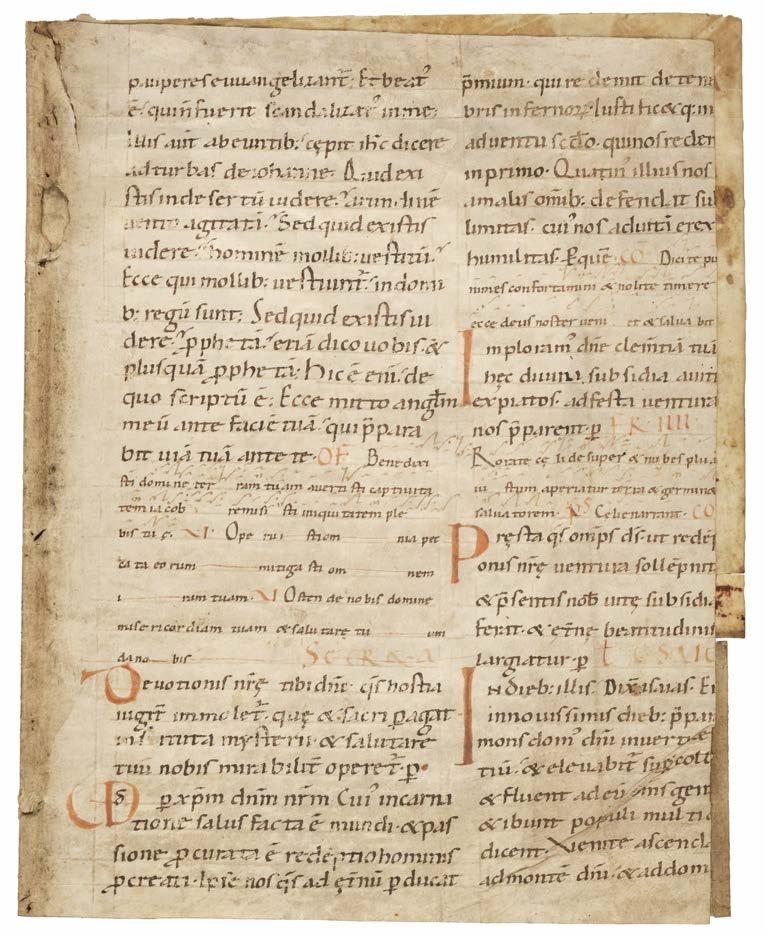 pauperes euuangelizant͛. Et beat᷒
ē. qui ñ fuerit scandalizat᷒ in me.
Illis aut̄ abeuntib: cępit ihc̄ dicere
ad turbas de iohanne. Quid exi
stis in desertū uidere. arundinē
uento agitatā. Sed quid existis
uidere. hominē mollib: uestitū.
Ecce qui mollib: uestiunt͛. in domi
b: regū sunt. Sed quid existis ui
dere. ꝓphetā. etiā dico uobis. &
plus quā ꝓphetā. Hic ē eni. de
quo scriptū ē. Ecce mitto anglm̄
meū ante faciē tuā. qui p̄para
bit uiā tuā ante te. OF Benedixi
sti domine ter ram tuam auerti sti captiuita
tem iacob remisi sti iniquitatem ple
bis tu ę. VI Ope rui sti om nia pec
ca ta eo rum mitiga sti om nem
i ram tuam. VI Osten de nobis domine
mise ricor diam tuam & salutare tu um
da no bis SECRETA
Deuotionis nr̄ę tibi dn̄e q̄s hostia
iugit͛ immolet͛. quę & sacri ꝑagat
instituta mysterii & salutare
tuū nobis mirabilit͛ operet͛. ꝑ.
UD ꝑ xp̄m dn̄m nr̄m Cui᷒ incarna
tione salus facta ē mundi. & pas
sione ꝓcurata ē redēptio hominis
ꝓcreati. Ipse nos q̄s ad ęt̄nū ꝑducat
p̄mium. qui redemit de tene
bris infernoꝝ. Iustificetq; in
aduentu scdo. qui nos redem
in primo. Quatin᷒ illius nos
a malis omib: defendat su
limitas. cui᷒ nos ad uitā erex
humilitas. Et quē. CO Dicite pu
nimes confortamini & nolite timere
ecce deus noster ueni et & salua bit
Imploram᷒ dn̄e clem̄tiā tuā
hęc diuina subsidia a uiti
expiatos. ad festa ventura
nos p̄parent. ꝑ FR IIII
Rorate cę li de super & nubes plua
iu stum aperiatur terra & germine
saluatorem. PS Celi enarrant. CO
Pręsta q̄s omīps ds̄. ut redēp
tionis nr̄ę ventura sollēpnit
& p̄sentis nob̄ uitę subsidi
ferat. & ęt̄nę beatitudinis
largiatur. ꝑ
In dieb: illis. Dix̄ isaias. Er
in nouissimis dieb: p̄par
mons dom᷒ dn̄i in uertice
tiū. & eleuabit͛ sup̄ coll
& fluent ad eū ōns gen
& ibunt populi multi
dicent. Venite ascend
ad montē dn̄i. & ad dom